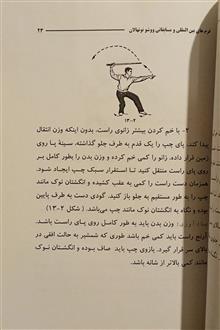 فرم های بین المللی و مسابقاتی ووشو نونهالان
۲۳
۱۳-۰۲
۲- با خم کردن بیشتر زانوی راست، بدون اینکه وزن انتقال
پیدا کند، پای چپ را یک قدم به طرف جلو گذاشته، سینهٔ پا روی
زمین قرار داده، زانو را کمی خم کرده و وزن بدن را بطور کامل بر
روی پای راست منتقل کنید تا استقرار سبک چپ ایجاد شود.
همزمان دست راست را کمی به عقب کشیده و انگشتان نوک مانند
چپ را به طور مستقیم به جلو باز کنید. گودی دست به طرف پایین
بوده و نگاه به انگشتان نوک مانند چپ می‌باشد. (شکل ۰۲-۱۳)
یادآوری: وزن بدن باید به طور کامل روی پای راست باشد.
آرنج راست باید کمی خم باشد طوری که شمشیر به حالت افقی در
بالای سر قرار گیرد. بازوی چپ باید صاف بوده و انگشتان نوک
مانند، کمی بالاتر از شانه باشد.